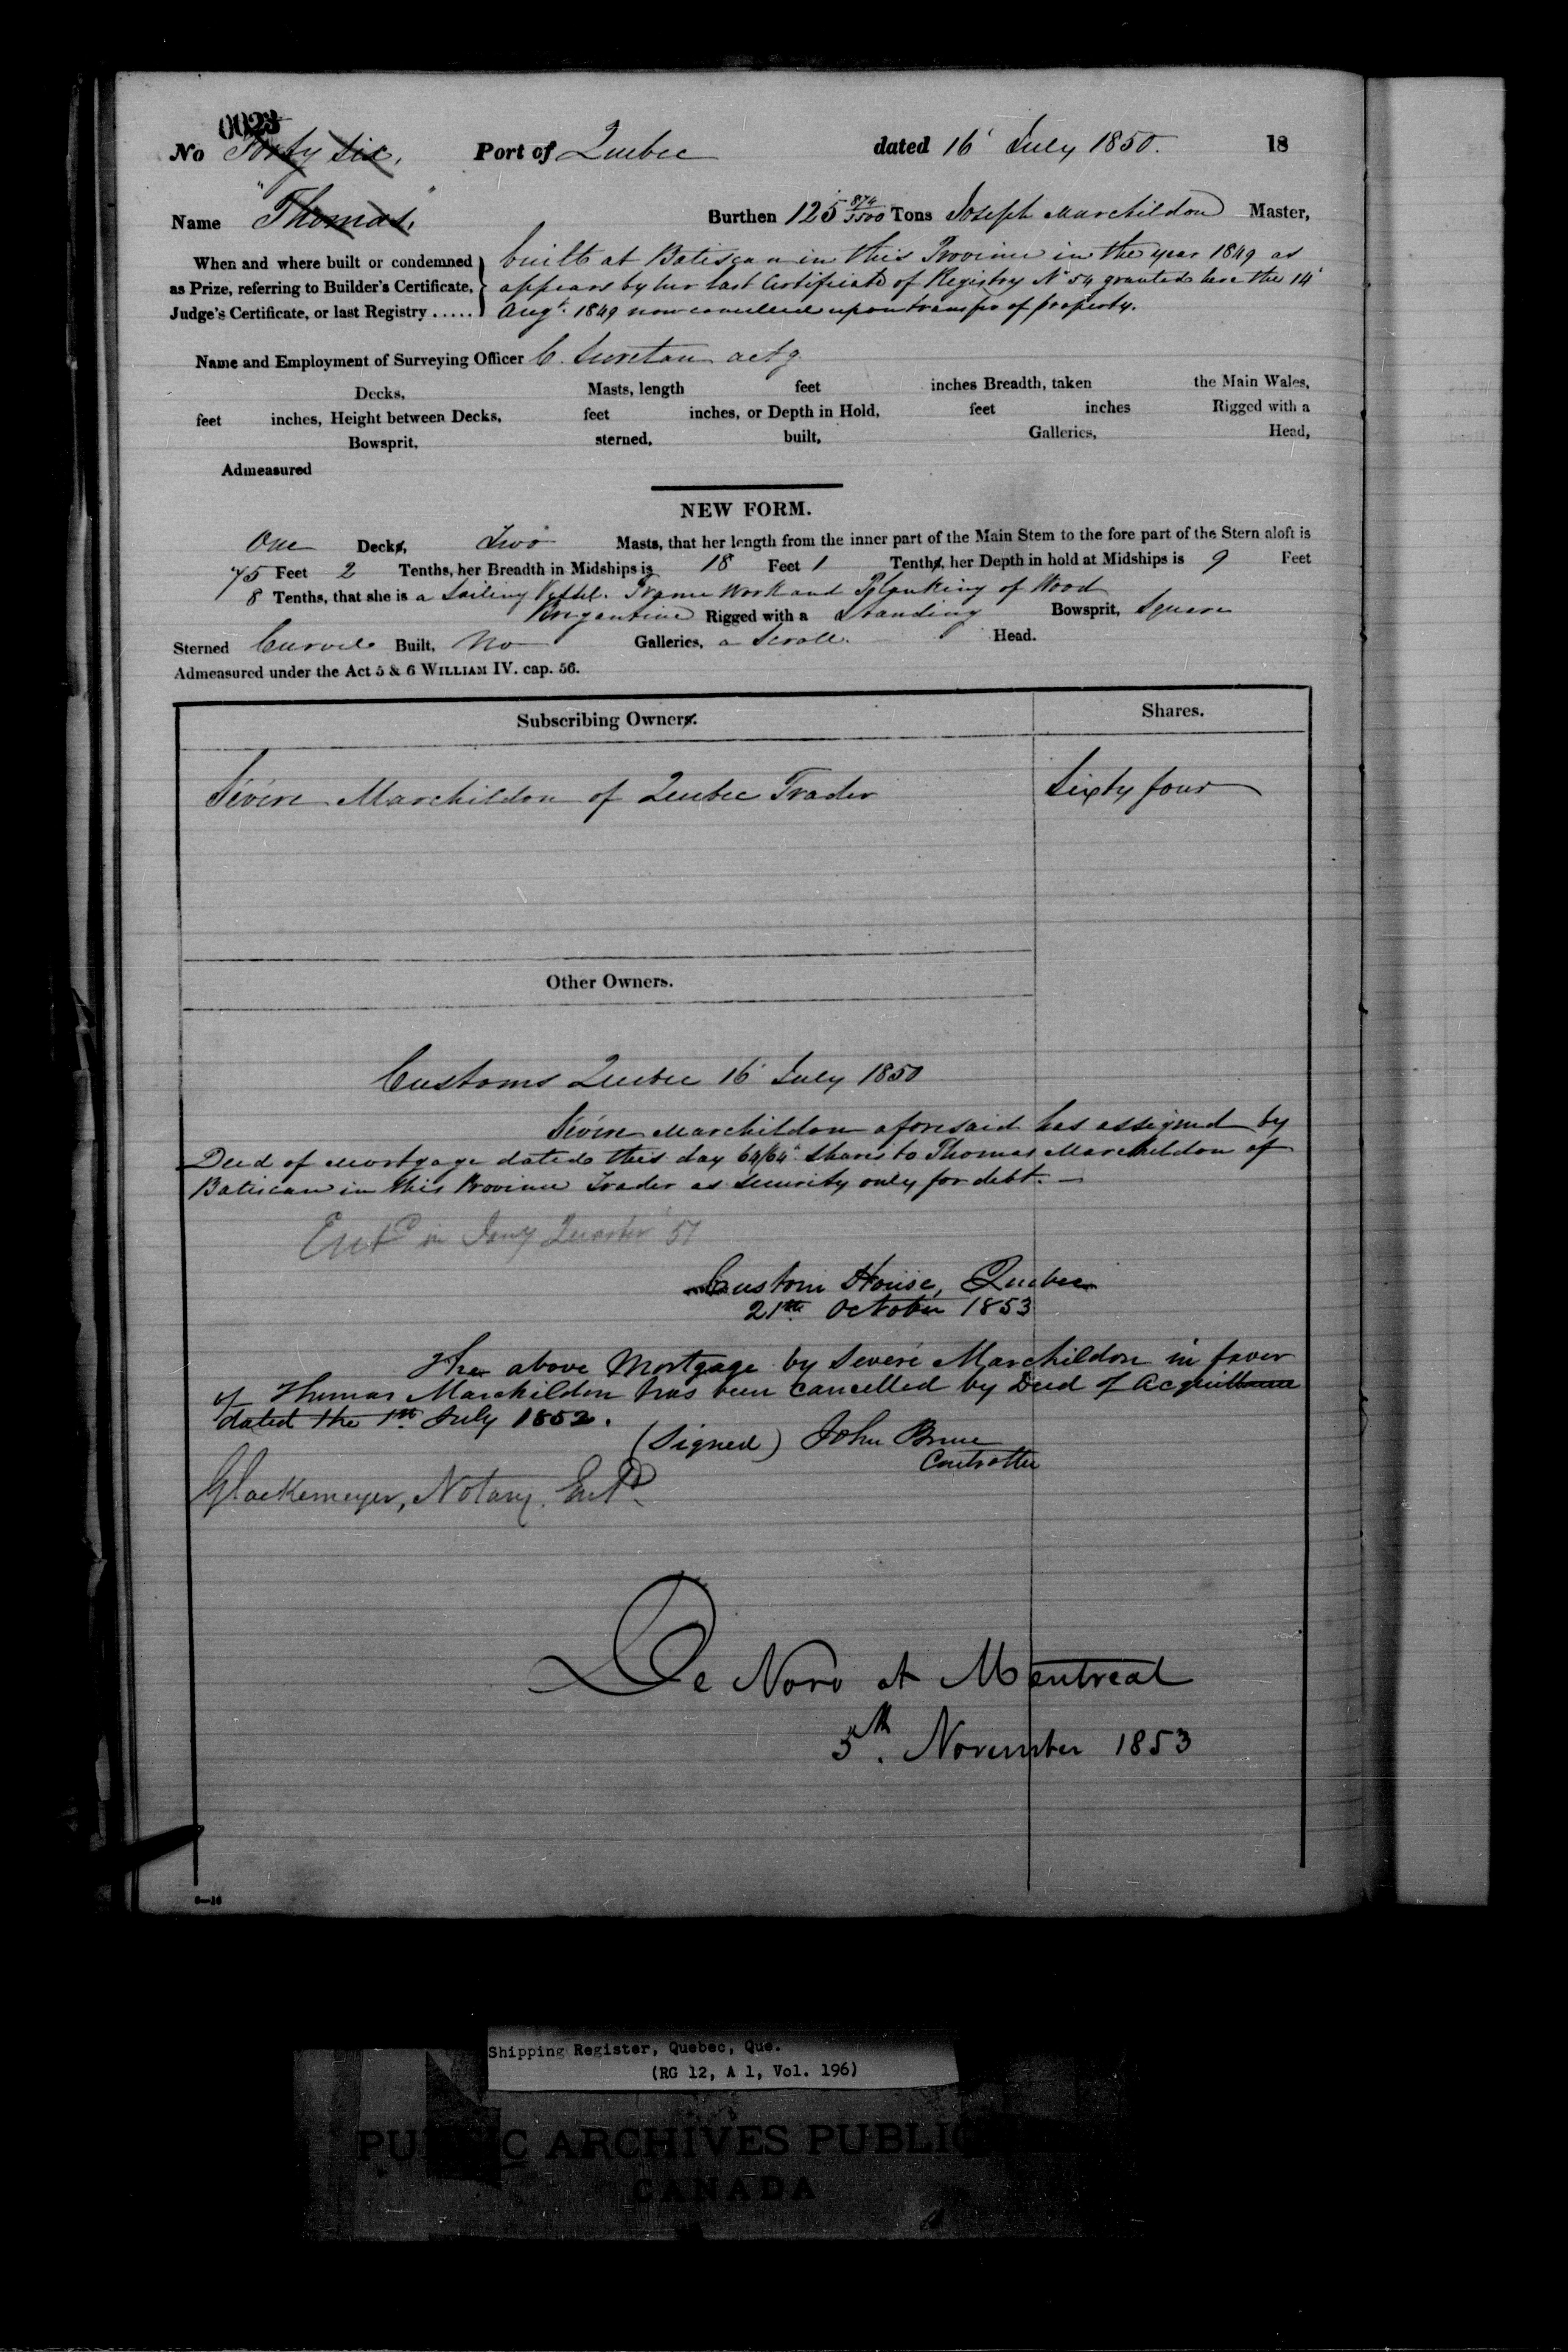 0023
No Forty six, Port of Quebec dated 16' July 1850. 18
Name "Thomas," Burthen 125 874/3500 Tons Joseph Marchildon Master,
When and where built or condemned as Prize, referring to Builder's Certificate, Judge's Certificate, or last Registry .....
built at Batiscan in this Province in the year 1849 as
appears by her last Certificate of Registry No 54 granted here the 14'
Augt. 1849 now cancelled upon transfer of property.
Name and Employment of Surveying Officer C. Suretau actg
Decks, Masts, length feet inches Breadth, taken the Main Wales,
feet inches, Height between Decks, feet inches, or Depth in Hold, feet inches Rigged with a
Bowsprit, sterned, built, Galleries, Head,
Admeasured
NEW FORM.
One Decks, Two Masts, that her length from the inner part of the Main Stem to the fore part of the Stern aloft is
75 Feet 2 Tenths, her Breadth in Midships is 18 Feet 1 Tenths, her Depth in hold at Midships is 9 Feet
8 Tenths, that she is a Sailing Vessel. Frame Work and Planking of Wood
Brigantine Rigged with a Standing Bowsprit, Square
Sterned Carvel Built, No Galleries, a Scroll. Head.
Admeasured under the Act 5 & 6 WILLIAM IV. cap. 56.
Subscribing Owners. Shares.
Sévère Marchildon of Quebec Trader Sixty four
Other Owners.
Customs Quebec 16' July 1850
Sévère Marchildon aforesaid has assigned by
Deed of Mortgage dated this day 64/64 Shares to Thomas Marchildon of
Batiscan in this Province Trader as Security only for debt.
Entd in Jany Quarter 51
Custom House, Quebec
21st October 1853
The above Mortgage by Severe Marchildon in favor
of Thomas Marchildon has been cancelled by Deed of Acquittance
dated the 1st July 1852.
(Signed) John Bruce
Controller
Glackemeyer, Notary. Entd.
De Novo at Montreal
5th. November 1853
6—16
Shipping Register, Quebec, Que.
(RG 12, A 1, Vol. 196)
PUBLIC ARCHIVES PUBLIC
CANADA